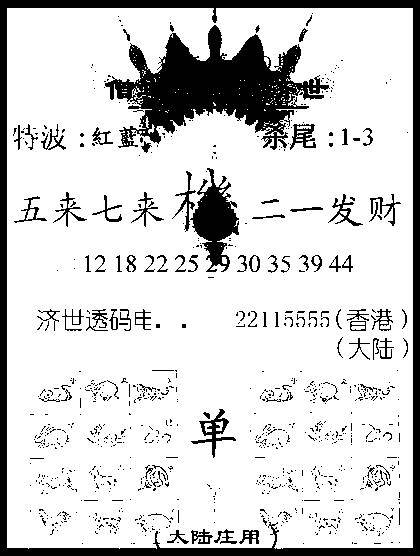 佰 世
特波：紅藍 杀尾：1-3
五来七来機 二一发财
12 18 22 25 29 30 35 39 44
济世透码电．． 22115555（香港）
（大陆）
单
（大陆庄用）